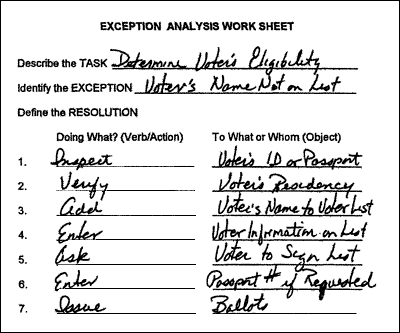 EXCEPTION ANALYSIS WORK SHEET
Describe the TASK Determine Voter's Eligibility
Identify the EXCEPTION Voter's Name Not on List
Define the RESOLUTION
Doing What? (Verb/Action) To What or Whom (Object)
1. Inspect Voter's ID or Passport
2. Verify Voter's Residency
3. Add Voter's Name to Voter List
4. Enter Voter Information on List
5. Ask Voter to Sign List
6. Enter Passport # if Requested
7. Issue Ballots